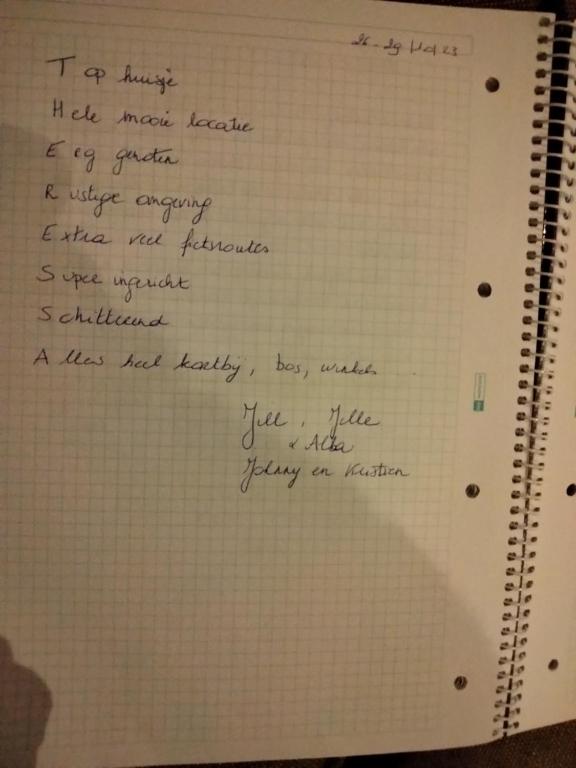 26-29 /10/ 23
T op huisje
H ele mooie locatie
E cg genoten
R ustige omgeving
E xtra veel fietsroutes
S uper ingericht
S chitterend
A lles heel kortbij, bos, winkels
Jill, Jelle
& Alba
Johnny en Kristien